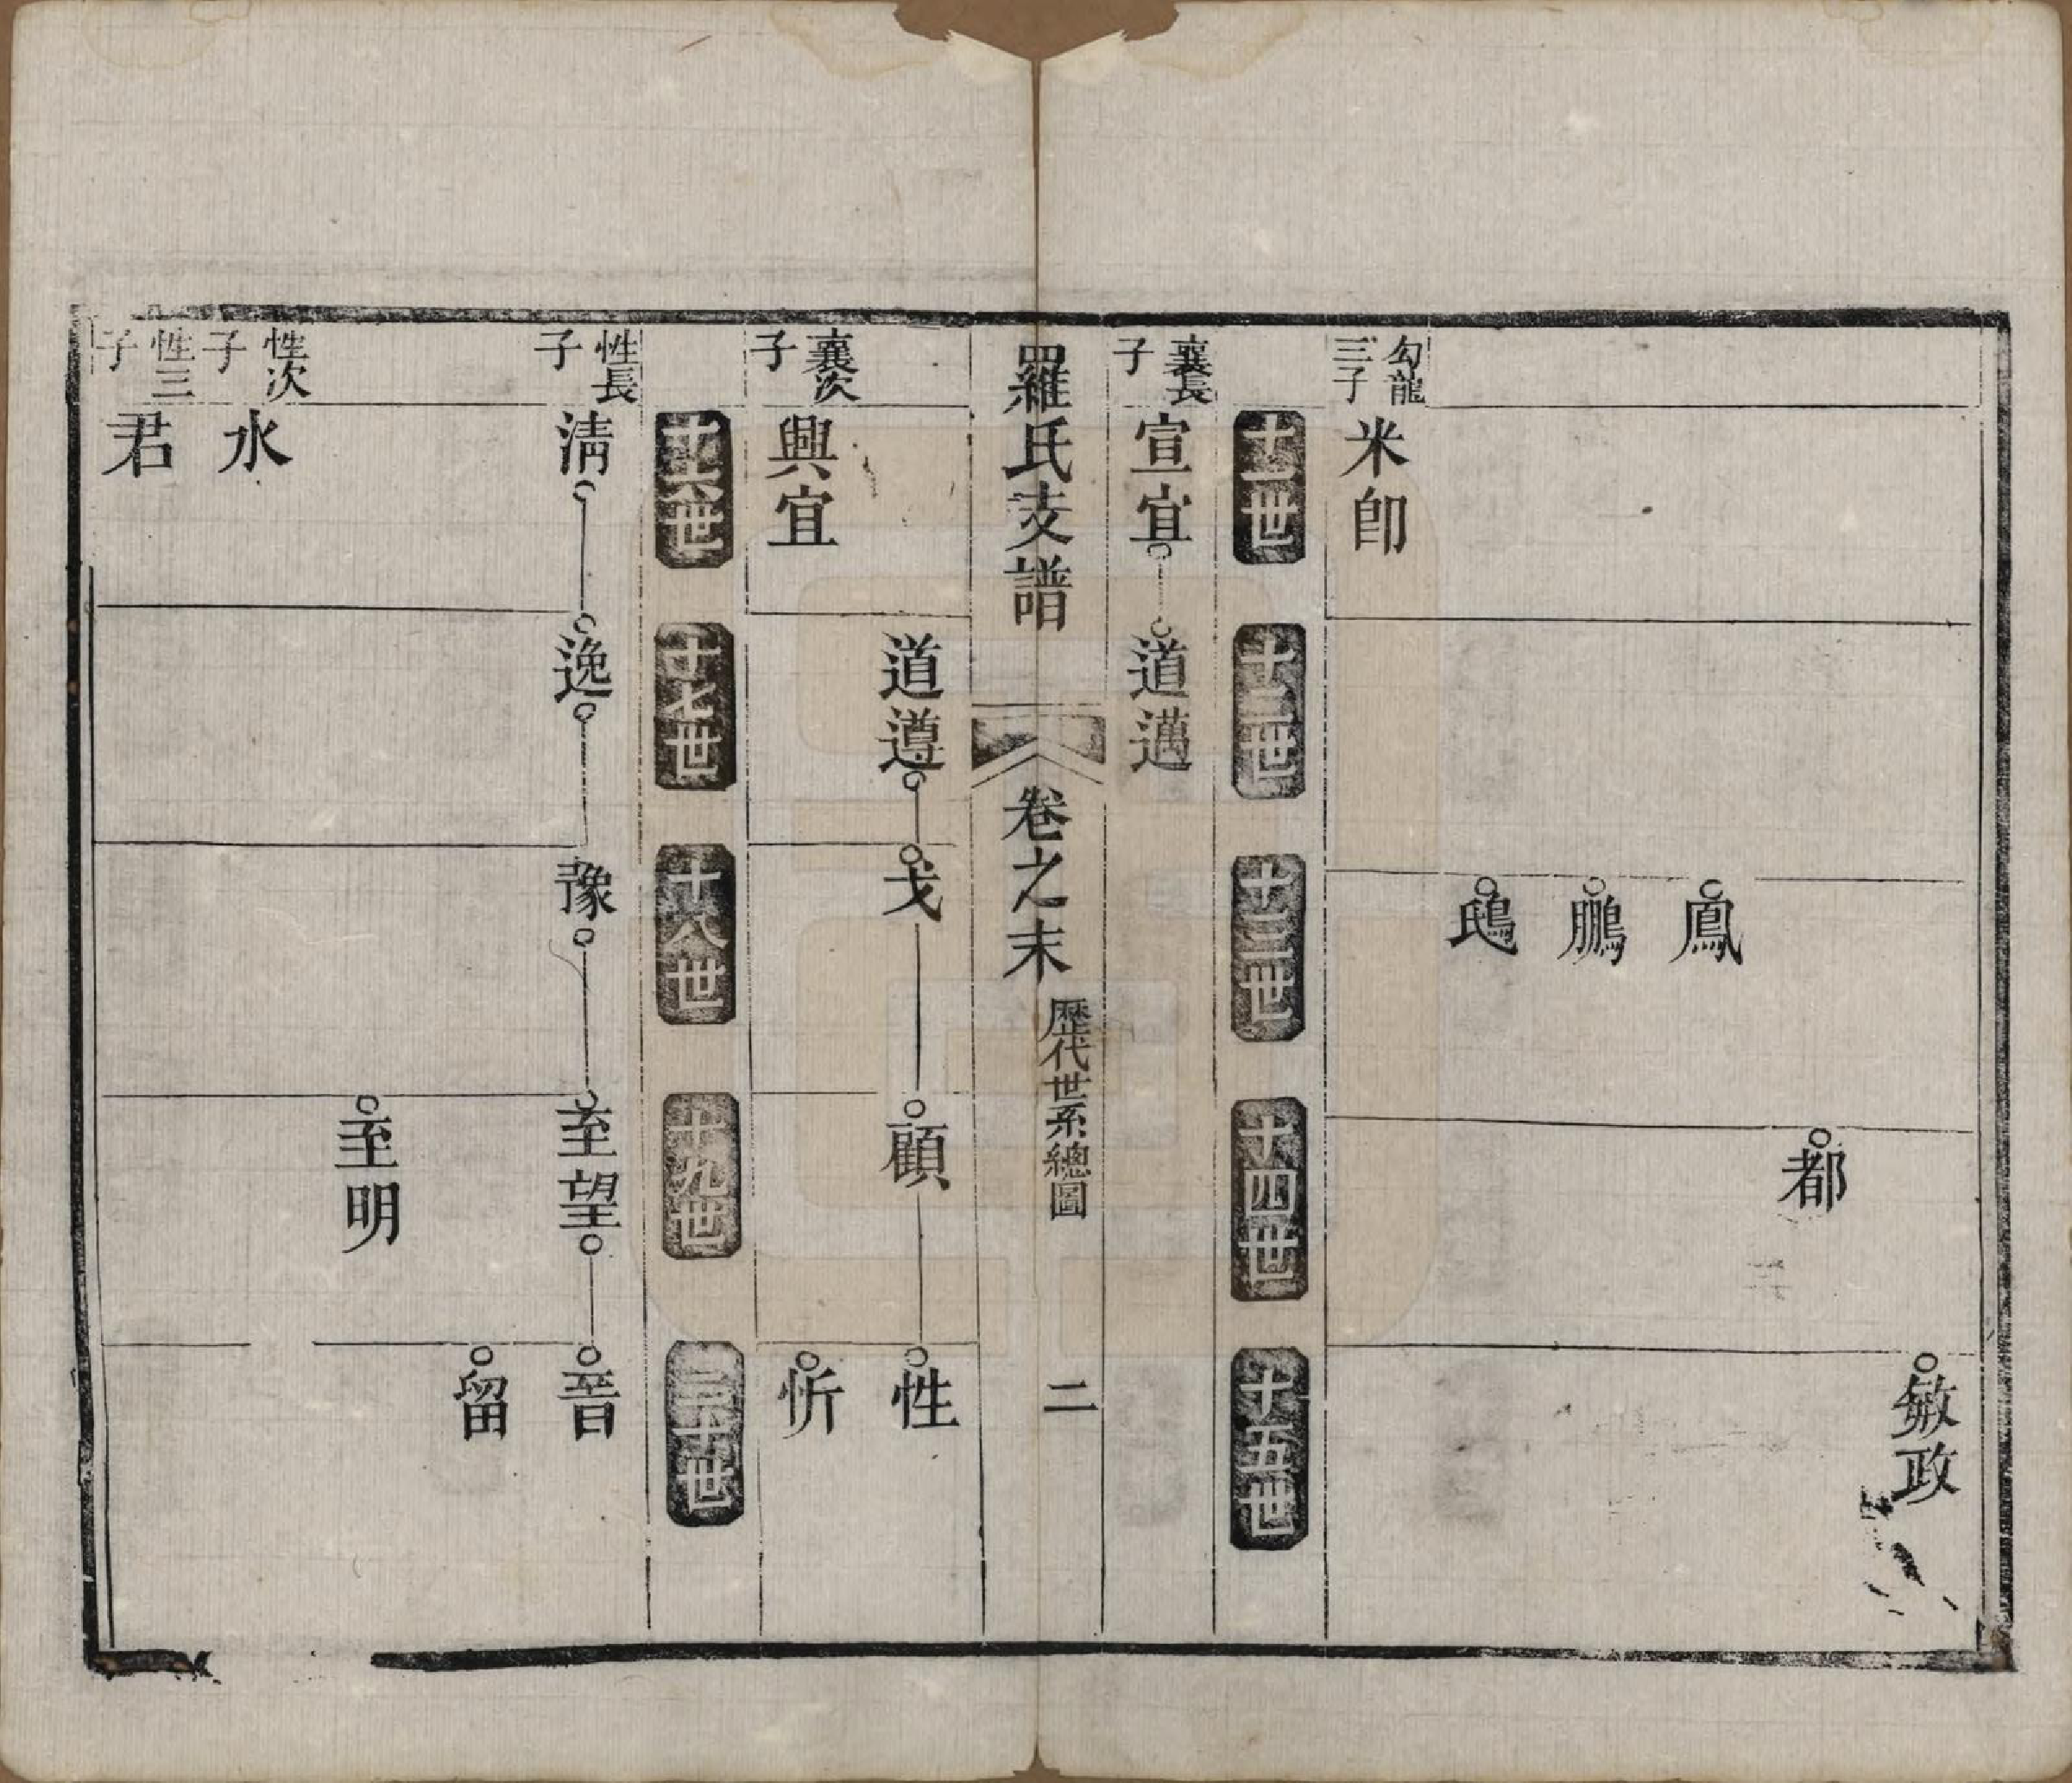 敏政
都
鳳
鵬
鴟
勾龍
三子
米卽
十一世
十二世
十三世
十四世
十五世
襄長
子
宣宜
道邁
羅氏支譜
卷之末
歷代世系總圖
二
道遵
戈
顧
性
襄次
子
興宜
忻
十六世
十七世
十八世
十九世
二十世
性長
子
淸
逸
豫
至望
音
留
至明
性次
子
水
性三
子
君